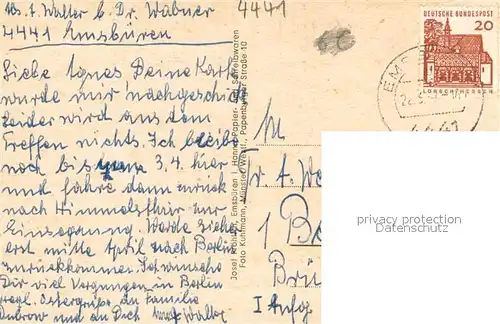 Abs. A. Walter b. Dr. Wabner
4441 Emsbüren
4441
Liebe Agnes Deine Karte
wurde mir nachgeschickt
Leider wird aus dem
Treffen nichts. Ich bleibe
noch bis zum 3.4. hier
und fahre dann zurück
nach Himmelsthür zur
Einsegnung. Werde sicher
erst mitte April nach Berlin
zurückkommen. Ich wünsche
Dir viel Vergnügen in Berlin
Ostergrüße an Familie
und an Dich Walter
Josef Emsbüren i. Hann., Papier- Schreibwaren
Foto Kuhlmann, Münster/Westf., Papenburger Straße 10
DEUTSCHE BUNDESPOST
20
LORSCH/HESSEN
EMSB
4441
Fr. A. We
1 B
Brü
I Aufg.
privacy protection
Datenschutz